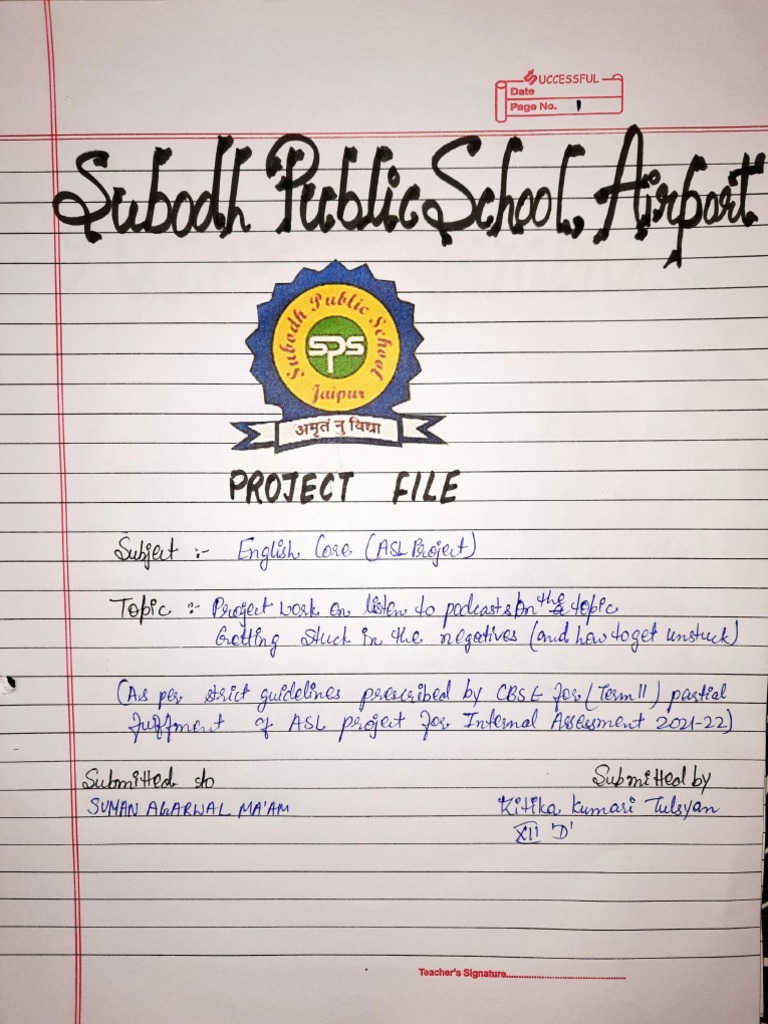 SUCCESSFUL
Date
Page No. 1
Subodh Public School, Airport
Subodh Public School
SPS
Jaipur
अमृतं नु विद्या
PROJECT FILE
Subject :- English Core (ASL Project)
Topic :- Project work on listen to podcasts on the topic
Getting stuck in the negatives (and how to get unstuck)
(As per strict guidelines prescribed by CBSE for (Term II) partial
fulfment of ASL project for Internal Assessment 2021-22)
Submitted to
Submitted by
SUMAN AGARWAL MA'AM
Kitika Kumari Tulsyan
XII 'D'
Teacher's Signature